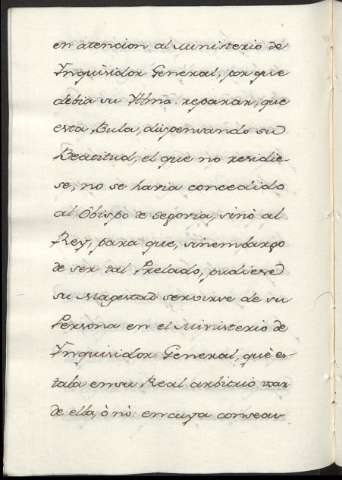 en atencion al Ministerio de
Ynquisidor General, por que
debia su Ylma. reparar, que
esta Bula, dispensando su
Beatitud, el que no residie-
se, no se havia concedido
al Obispo de Segovia, sinó al
Rey, para que, sinembargo
de ser tal Prelado, pudiese
su Magestad servirse de su
Persona en el Ministerio de
Ynquisidor General, que es-
taba en su Real arbitrio usar
de ella, ó nó: en cuya consecu-